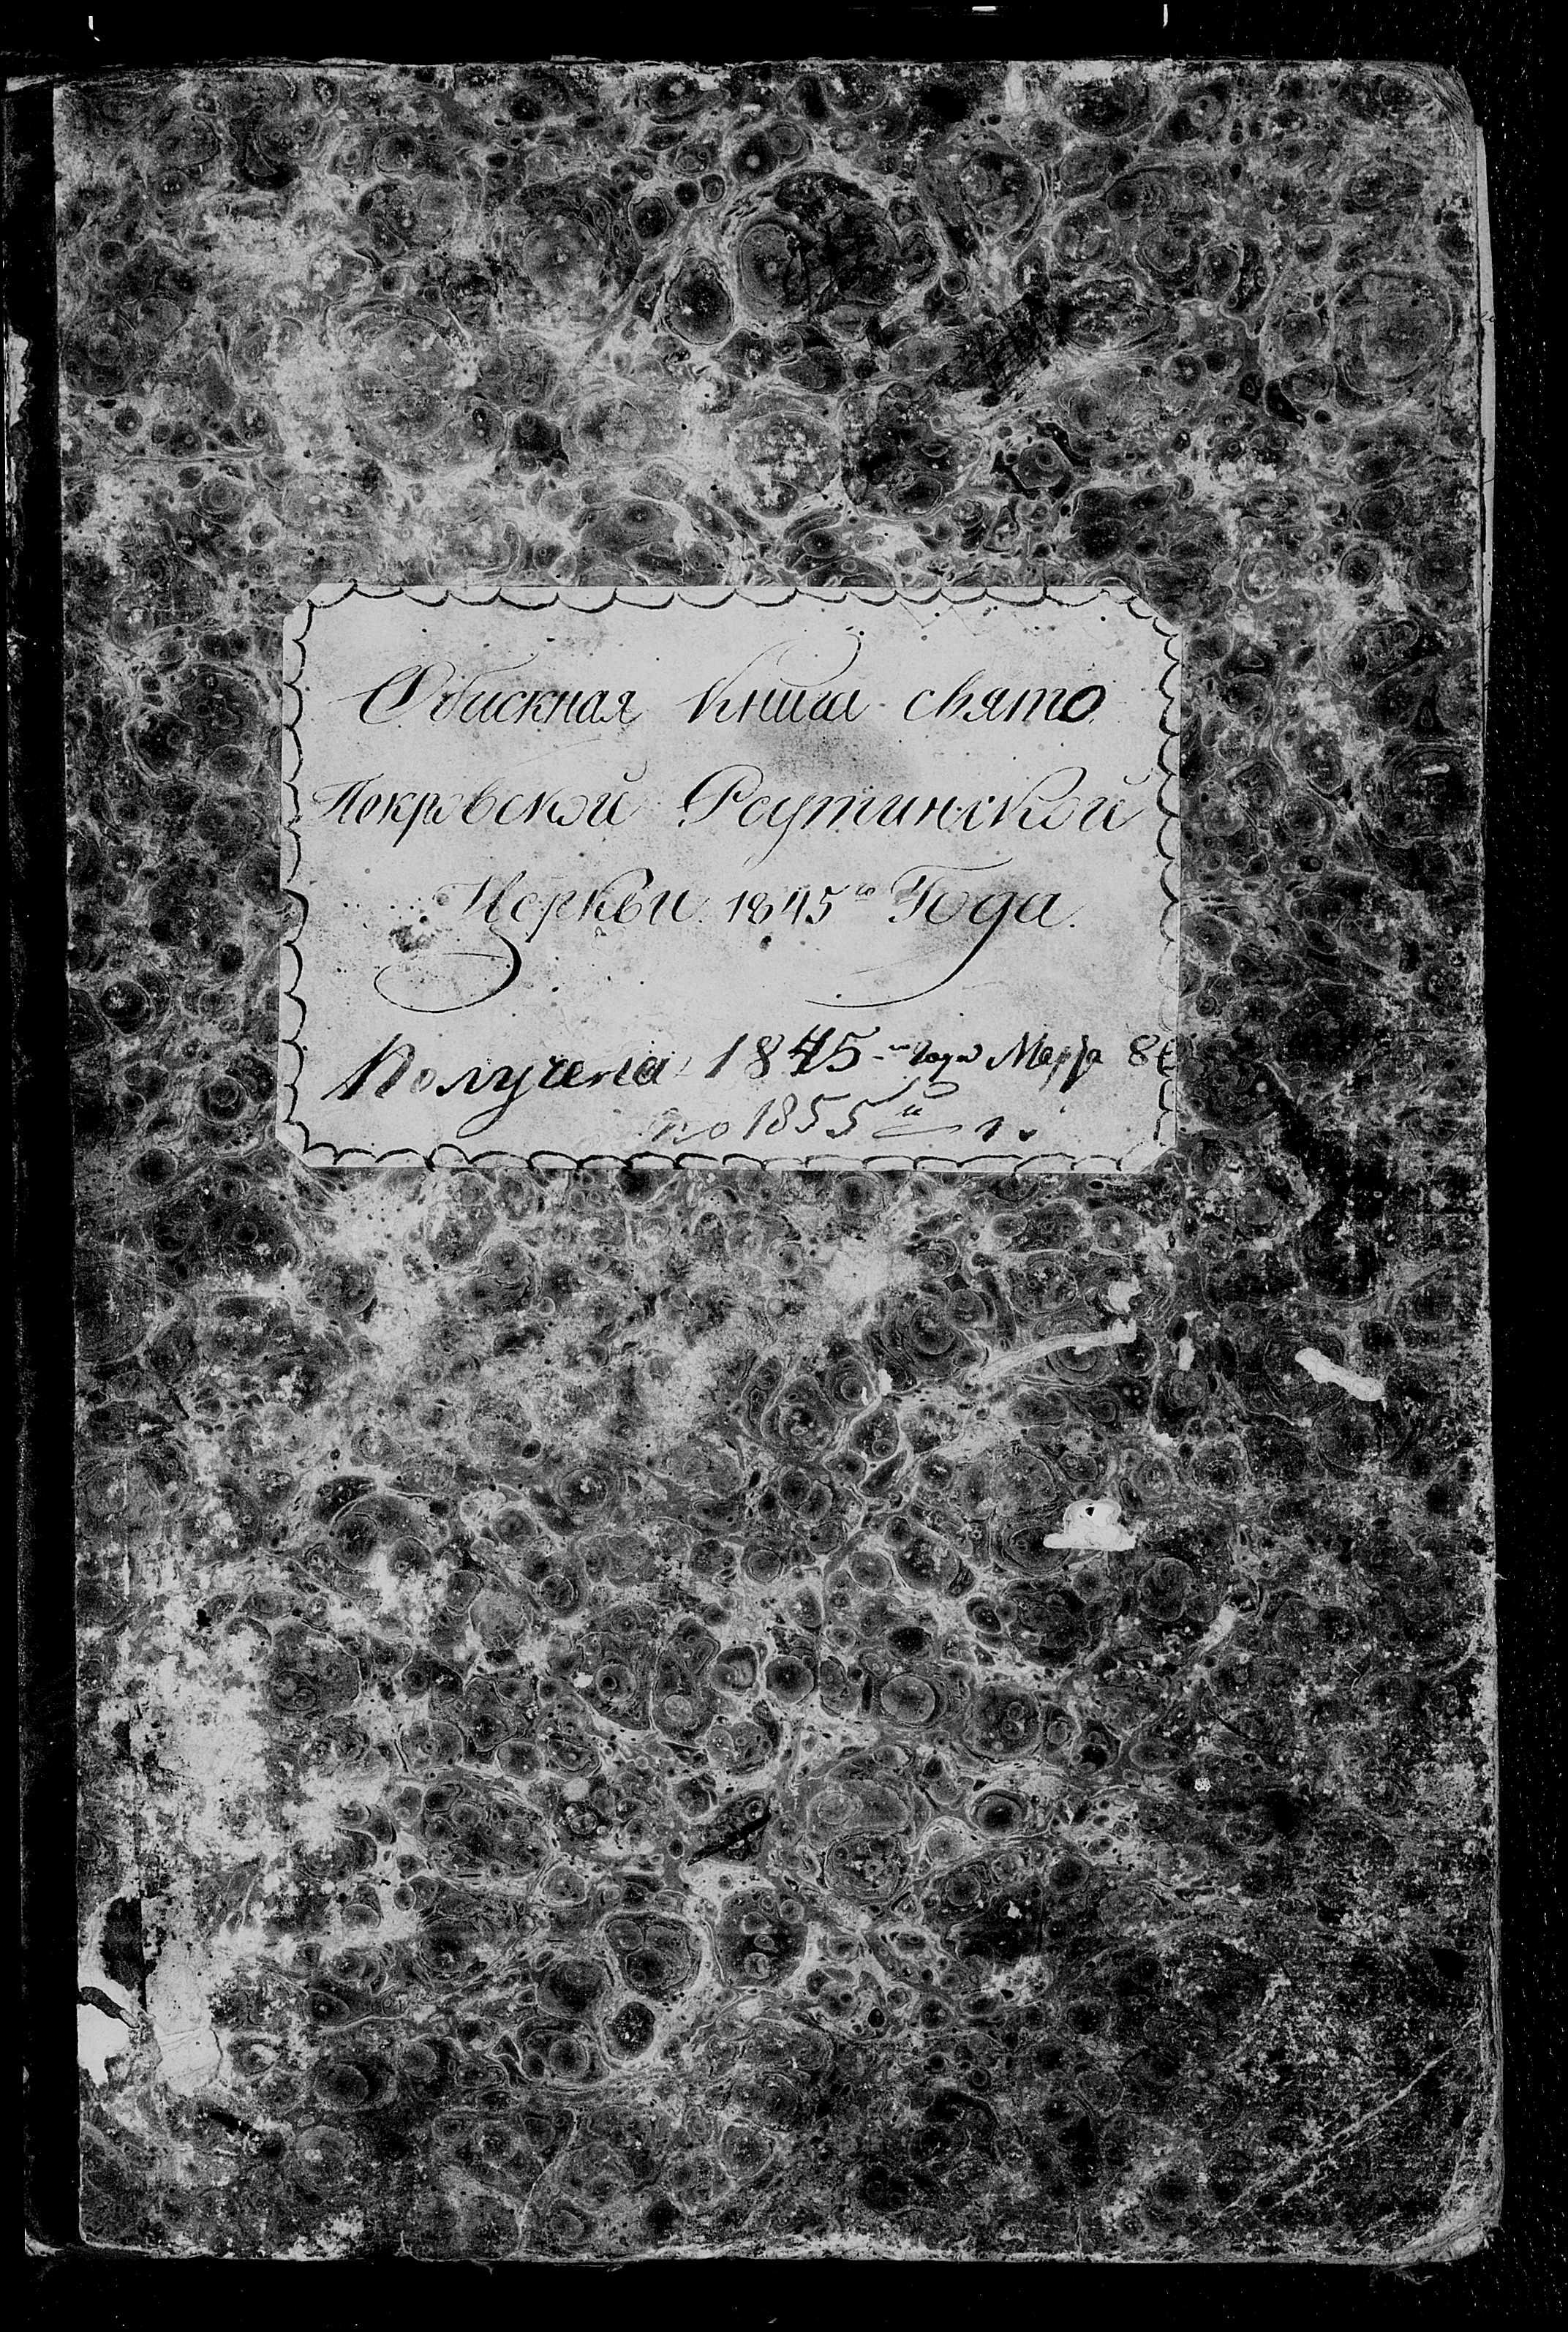 Обискная Книга свято
Покровской Реутинской
Церкви 1845го Года.
Получена 1845-го года Мар̃а 8
по 1855й г.